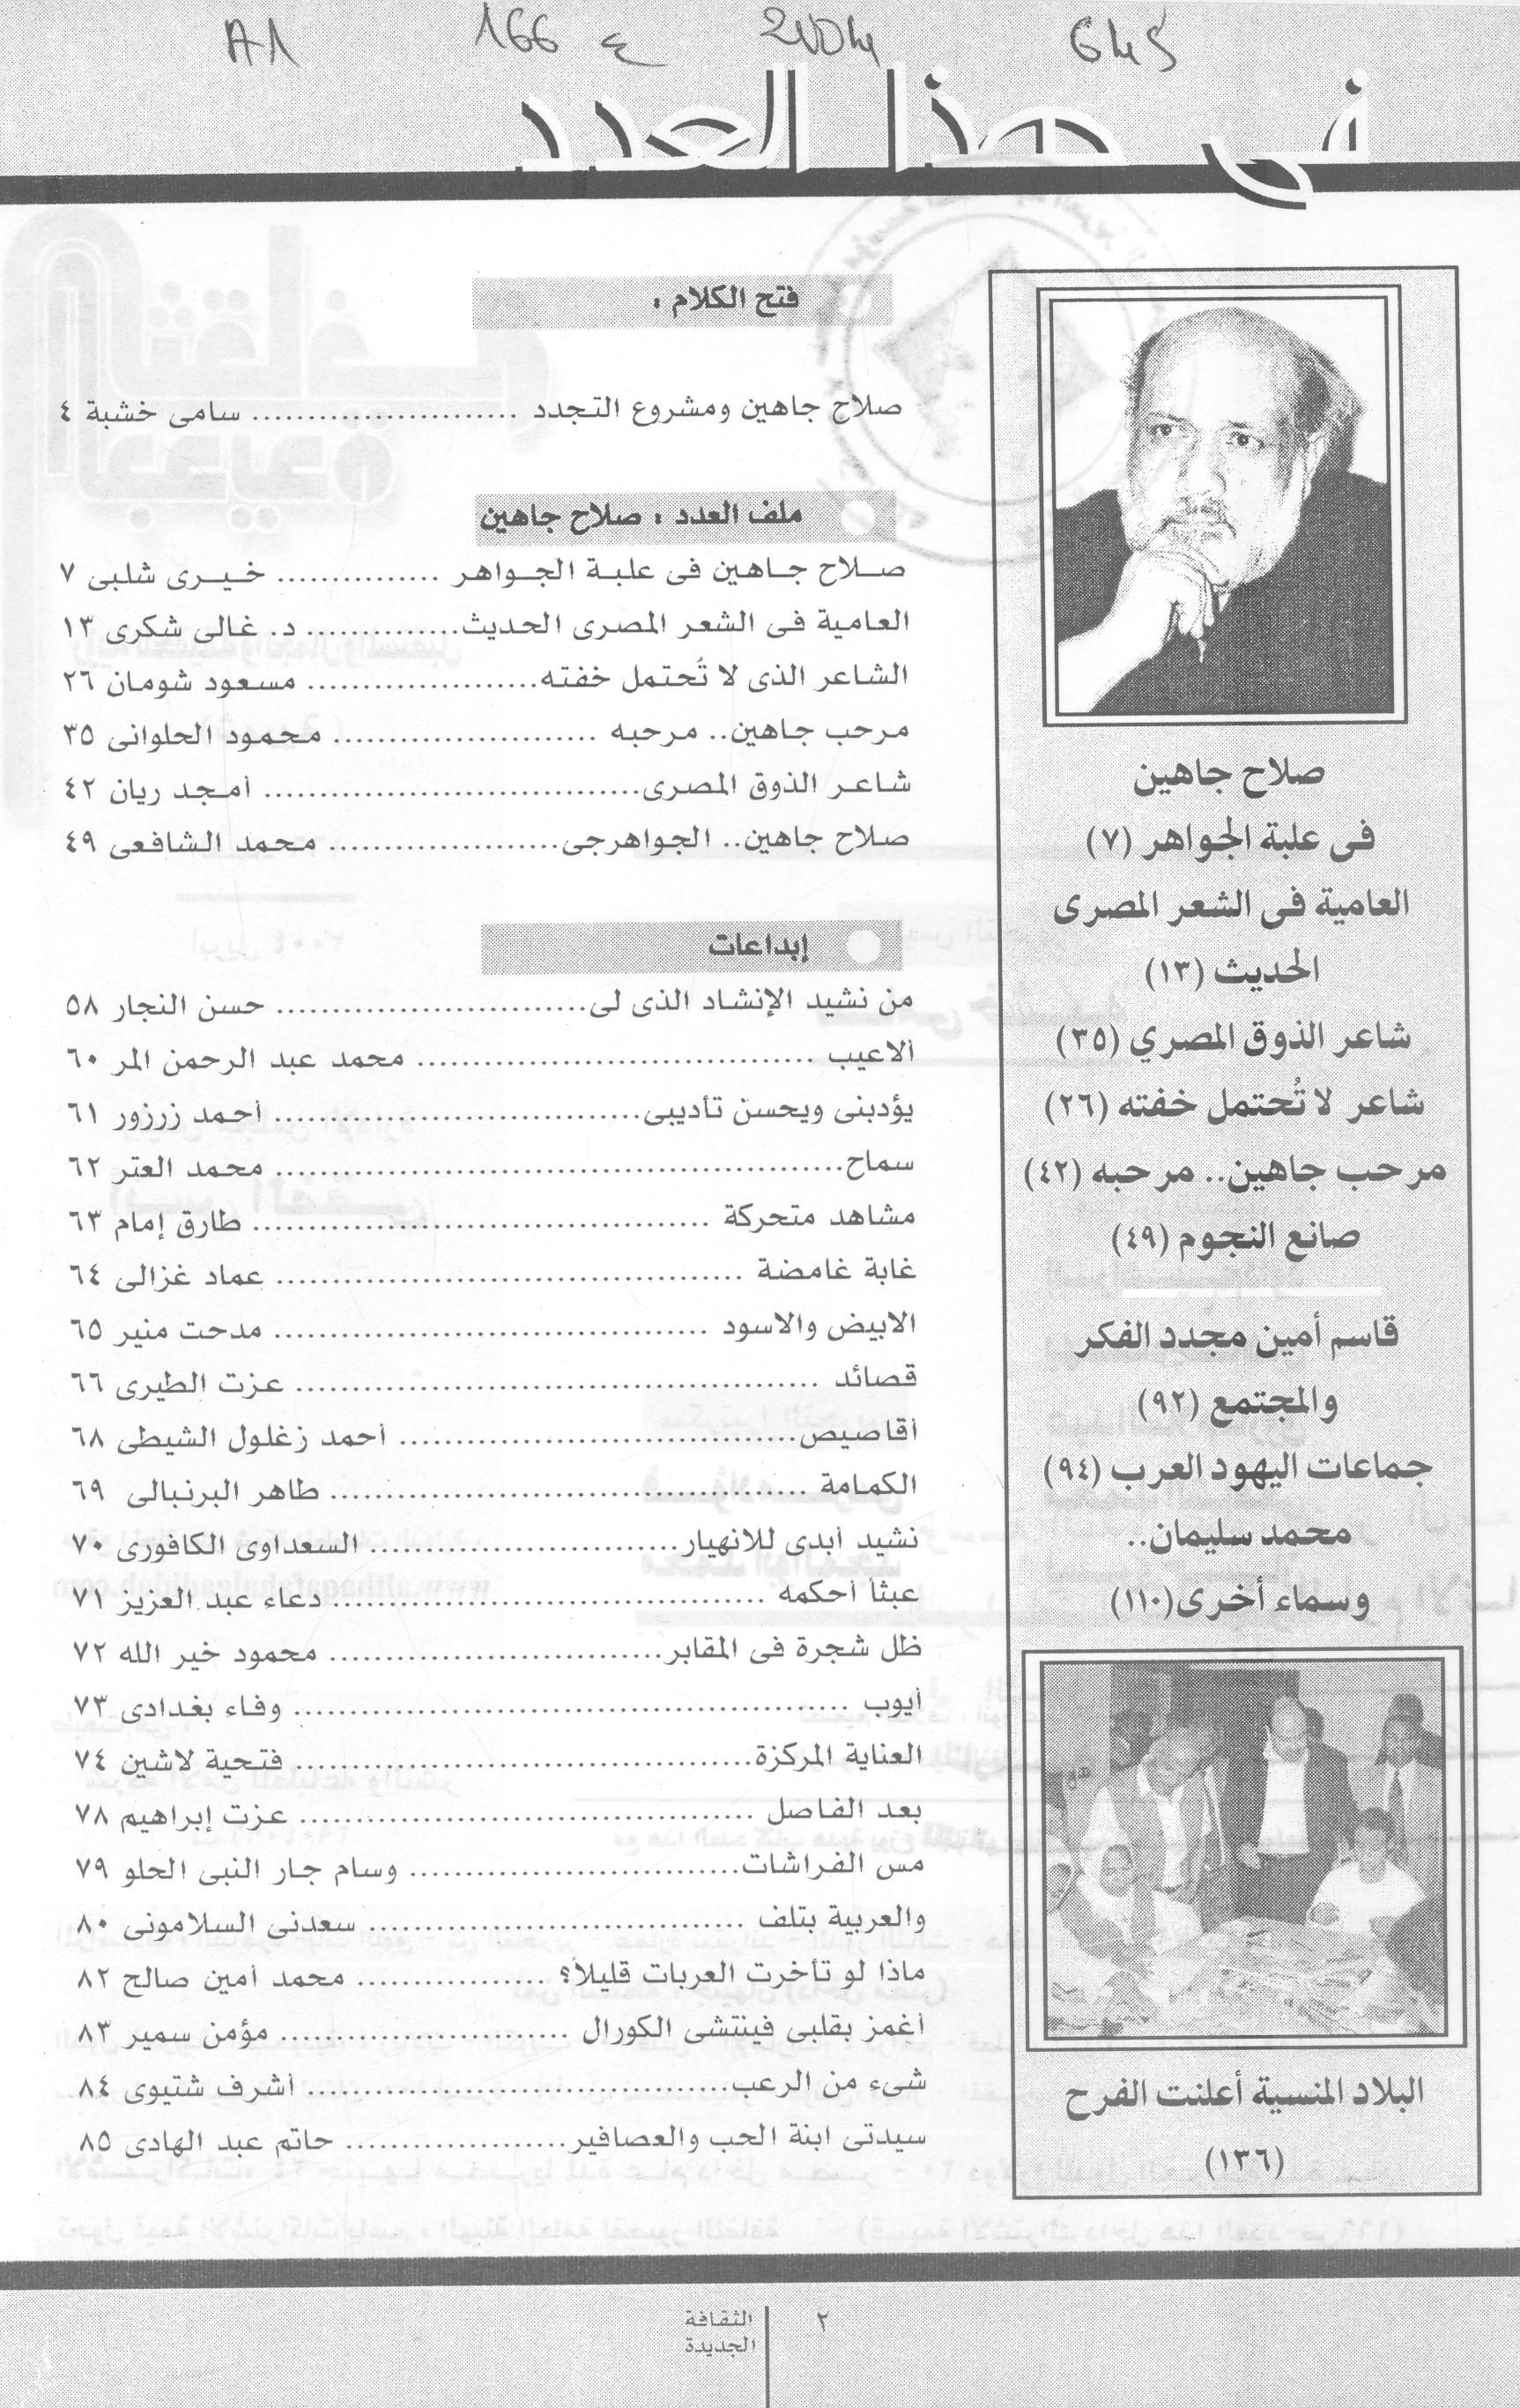 A1 166 ع 2004 645
فى هذا العدد
صلاح جاهين
فى علبة الجواهر (٧)
العامية فى الشعر المصرى
الحديث (١٣)
شاعر الذوق المصري (٣٥)
شاعر لا تُحتمل خفته (٢٦)
مرحب جاهين.. مرحبه (٤٢)
صانع النجوم (٤٩)
قاسم أمين مجدد الفكر
والمجتمع (٩٢)
جماعات اليهود العرب (٩٤)
محمد سليمان..
وسماء أخرى (١١٠)
البلاد المنسية أعلنت الفرح
(١٣٦)
فتح الكلام :
صلاح جاهين ومشروع التجدد ........................ سامى خشبة ٤
ملف العدد : صلاح جاهين
صلاح جاهين فى علبة الجواهر ............... خيرى شلبى ٧
العامية فى الشعر المصرى الحديث.............. د. غالى شكرى ١٣
الشاعر الذى لا تُحتمل خفته..................... مسعود شومان ٢٦
مرحب جاهين.. مرحبه ........................ محمود الحلوانى ٣٥
شاعر الذوق المصرى.................................. أمجد ريان ٤٢
صلاح جاهين.. الجواهرجى..................... محمد الشافعى ٤٩
إبداعات
من نشيد الإنشاد الذى لى............................ حسن النجار ٥٨
ألاعيب .................................... محمد عبد الرحمن المر ٦٠
يؤدبنى ويحسن تأديبى................................. أحمد زرزور ٦١
سماح................................................... محمد العتر ٦٢
مشاهد متحركة ......................................... طارق إمام ٦٣
غابة غامضة .......................................... عماد غزالى ٦٤
الابيض والاسود ....................................... مدحت منير ٦٥
قصائد ............................................... عزت الطيرى ٦٦
أقاصيص.................................... أحمد زغلول الشيطى ٦٨
الكمامة ........................................... طاهر البرنبالى ٦٩
نشيد أبدى للانهيار............................ السعداوى الكافورى ٧٠
عبثا أحكمه ....................................... دعاء عبد العزيز ٧١
ظل شجرة فى المقابر.............................. محمود خير الله ٧٢
أيوب .................................................. وفاء بغدادى ٧٣
العناية المركزة......................................... فتحية لاشين ٧٤
بعد الفاصل ......................................... عزت إبراهيم ٧٨
مس الفراشات.............................. وسام جار النبى الحلو ٧٩
والعربية بتلف .................................. سعدنى السلامونى ٨٠
ماذا لو تأخرت العربات قليلاً؟ ................. محمد أمين صالح ٨٢
أغمز بقلبى فينتشى الكورال .......................... مؤمن سمير ٨٣
شىء من الرعب...................................... أشرف شتيوى ٨٤
سيدتى ابنة الحب والعصافير.................... حاتم عبد الهادى ٨٥
٢
الثقافة
الجديدة